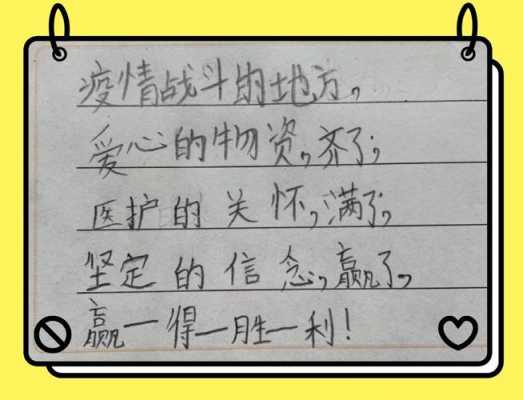 疫情战斗的地方，
爱心的物资，齐了；
医护的关怀，满了；
坚定的信念，赢了，
赢一得一胜一利！